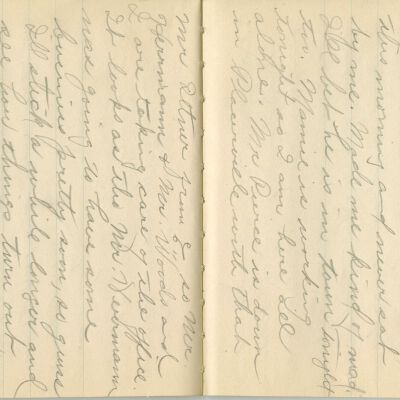 this morning and never sat
by me. Made me kind of mad.
bet he is in town tonight
too. Mamie is working
tonight so I am here all
alone. Mr Pierce is down
in Placerville with that
Mr from so Mr
Herrmann & Mr Woods and
I are taking care of the office.
It looks as tho Mr. Herrmann
was going to have some
business pretty soon, so guess
I'll stick a while longer and
see how things turn out.